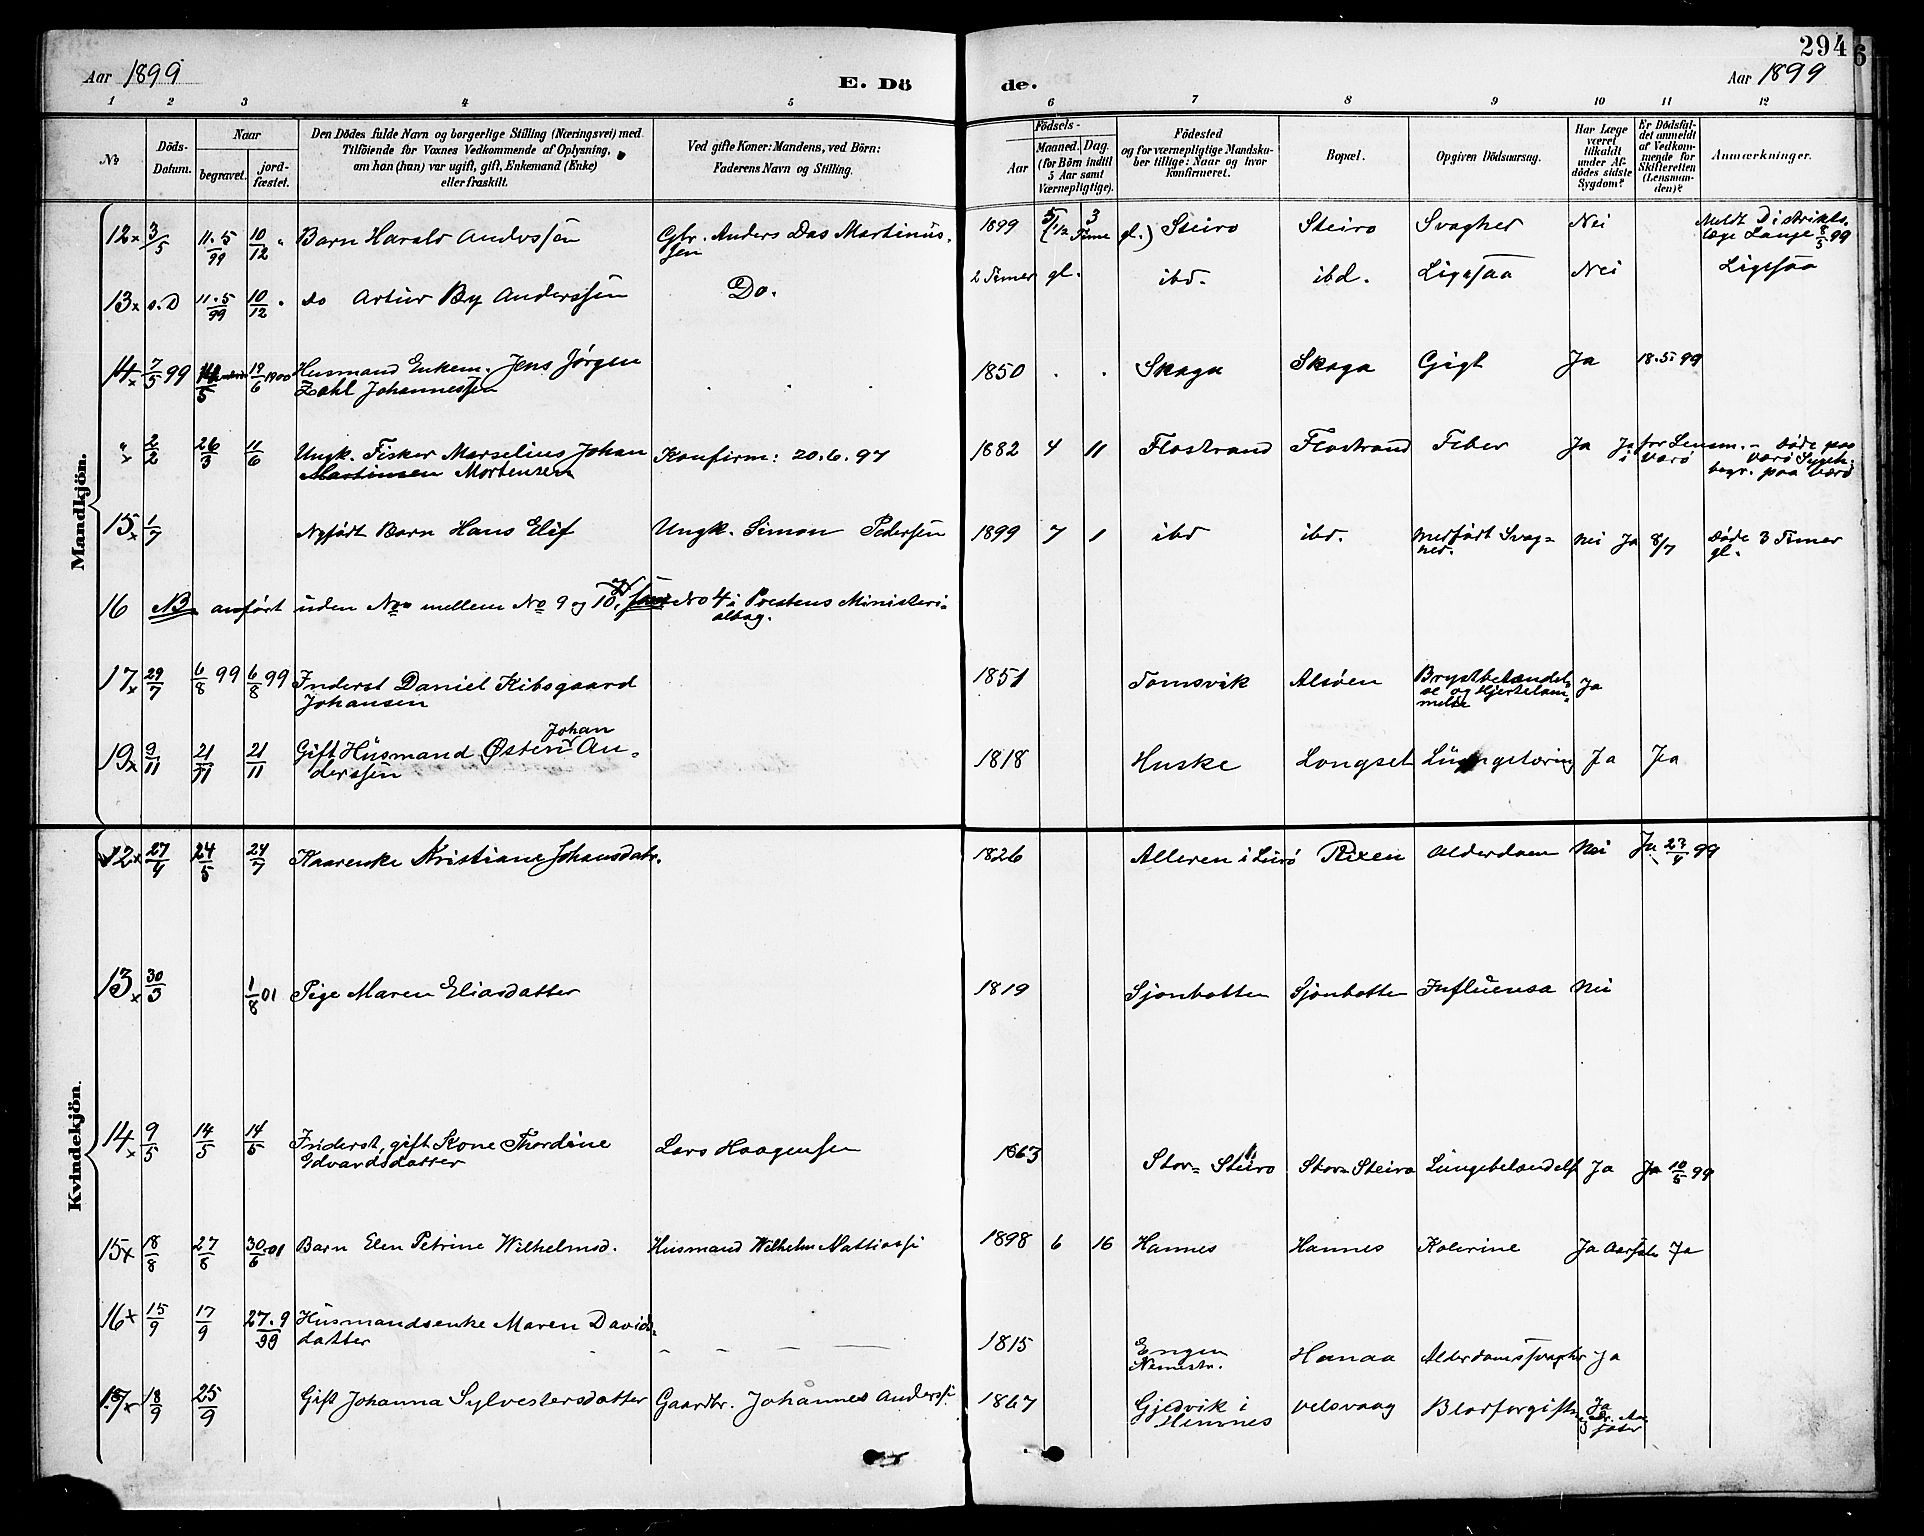 294
6
Aar 1899
E. Dö
de.
Aar 1899
1 2 3 4 5 6 7 8 9 10 11 12
No
Döds-Datum.
Naar
begravet.
jord-fæstet.
Den Dödes fulde Navn og borgerlige Stilling (Næringsvei) med
Tilföiende for Voxnes Vedkommende af Oplysning,
om han (hun) var ugift, gift, Enkemand (Enke)
eller fraskilt.
Ved gifte Koner: Mandens, ved Börn:
Faderens Navn og Stilling.
Födsels-
Aar
Maaned. Dag.
(for Börn indtil
5 Aar samt
Værnepligtige).
Födested
og for værnepligtige Mandska-
ber tillige: Naar og hvor
konfirmeret.
Bopæl.
Opgiven Dödsaarsag.
Har Læge
været
tilkaldt
under Af-
dödes sidste
Sygdom?
Er Dödsfal-
det anmeldt
af Vedkom-
mende for
Skifteretten
(Lensman-
den)?
Anmærkninger.
Mandkjön.
12 x 3/5 11.5/99 10/12 Barn Harald Anderssen Gbr. Anders Das Martinus-
sen 1899 5 3 Steiro Steiro Svaghed Nei Meldt Distrikts-
læge Lange 8/5 99
13 x s.D 11.5/99 10/12 do Artur By Anderssen Do. 2 Timer gl. ibd. ibd. Ligesaa Nei Ligesaa
14 x 7/5 99 19/6 1900 Husmand Enkem. Jens Jørgen
Zahl Johannessen 1850 Skaga Skaga Gigt Ja 18.5 99
" x 2/2 26/3 11/6 Ungk. Fisker Marselius Johan
Martinsen Mortensen Konfirm: 20.6.97 1882 4 11 Flostrand Flostrand Feber Ja Ja for Lensm. i Værø Døde paa
Værø Sygeh.
begr. paa Værø
15 x 1/7 Nyfødt Barn Hans Elif Ungk. Simon Pedersen 1899 7 1 ibd ibd. Medfødt Svag-
hed. Nei Ja 8/7 Døde 3 Timer
gl.
16 NB anført uden No mellem No 9 og 10. No 4 i Prestens Ministeri-
albog.
17 x 29/7 6/8 99 6/8 99 Inderst Daniel Kibsgaard
Johansen 1851 Tomsvik Alsøen Brystbetændel-
se og Hjertelam-
melse Ja
19 x 9/11 21/11 21/11 Gift Husmand Østen Johan An-
derssen 1818 Huske Longset Lungetæring Ja Ja
Kvindekjön.
12 x 27/4 24/5 24/7 Kaarenke Kristiane Johansdatr. 1826 Alleren i Lurø Rixen Alderdom Nei Ja 29/4 99
13 x 30/3 1/8 01 Pige Maren Eliasdatter 1819 Sjonbotten Sjonbotten Influensa Nei
14 x 9/5 14/5 14/5 Inderst, gift Kone Thordine
Edvardsdatter Lars Haagensen 1863 Stor-Steiro Stor-Steiro Lungebetændelse Ja Ja 10/5 99
15 x 18/8 27/8 30/6 01 Barn Elen Petrine Wilhelmsd. Husmand Wilhelm Mattiass. 1898 6 16 Hannes Hannes Kolerine Ja Ja
16 x 15/9 17/9 27.9/99 Husmandsenke Maren Davids-
datter 1815 Engen
Nemstn. Hanaa Alderdomssvaghed Ja
17 x 18/9 25/9 Gift Johanna Sylvestersdatter Gaardbr. Johannes Anderss. 1867 Gjesvik i
Hemnes Velsvaag Blodforgiftn. Ja